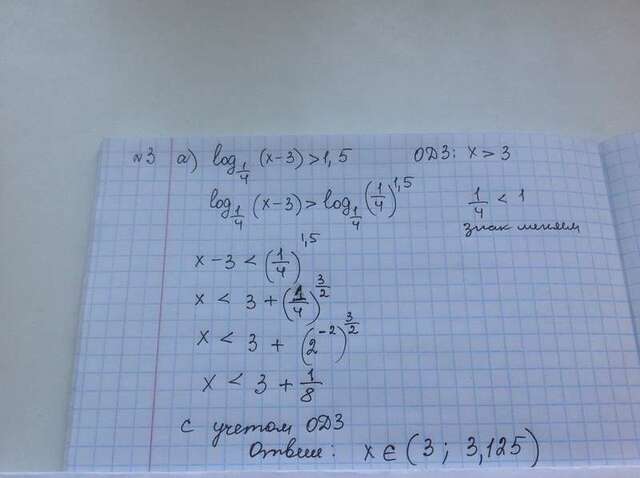 №3 а) log_{1/4} (x-3) > 1,5 ОДЗ: x > 3
log_{1/4} (x-3) > log_{1/4} (1/4)^{1,5} 1/4 < 1
знак меняем
x - 3 < (1/4)^{1,5}
x < 3 + (1/4)^{3/2}
x < 3 + (2^{-2})^{3/2}
x < 3 + 1/8
с учетом ОДЗ
Ответ: x ∈ (3 ; 3,125)